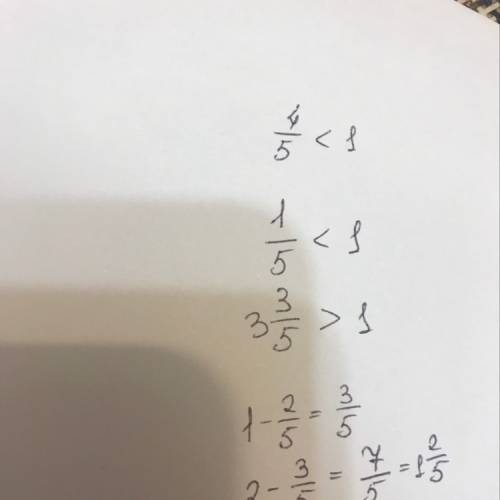 4/5 < 1
1/5 < 1
3 3/5 > 1
1 - 2/5 = 3/5
2 - 3/5 = 7/5 = 1 2/5